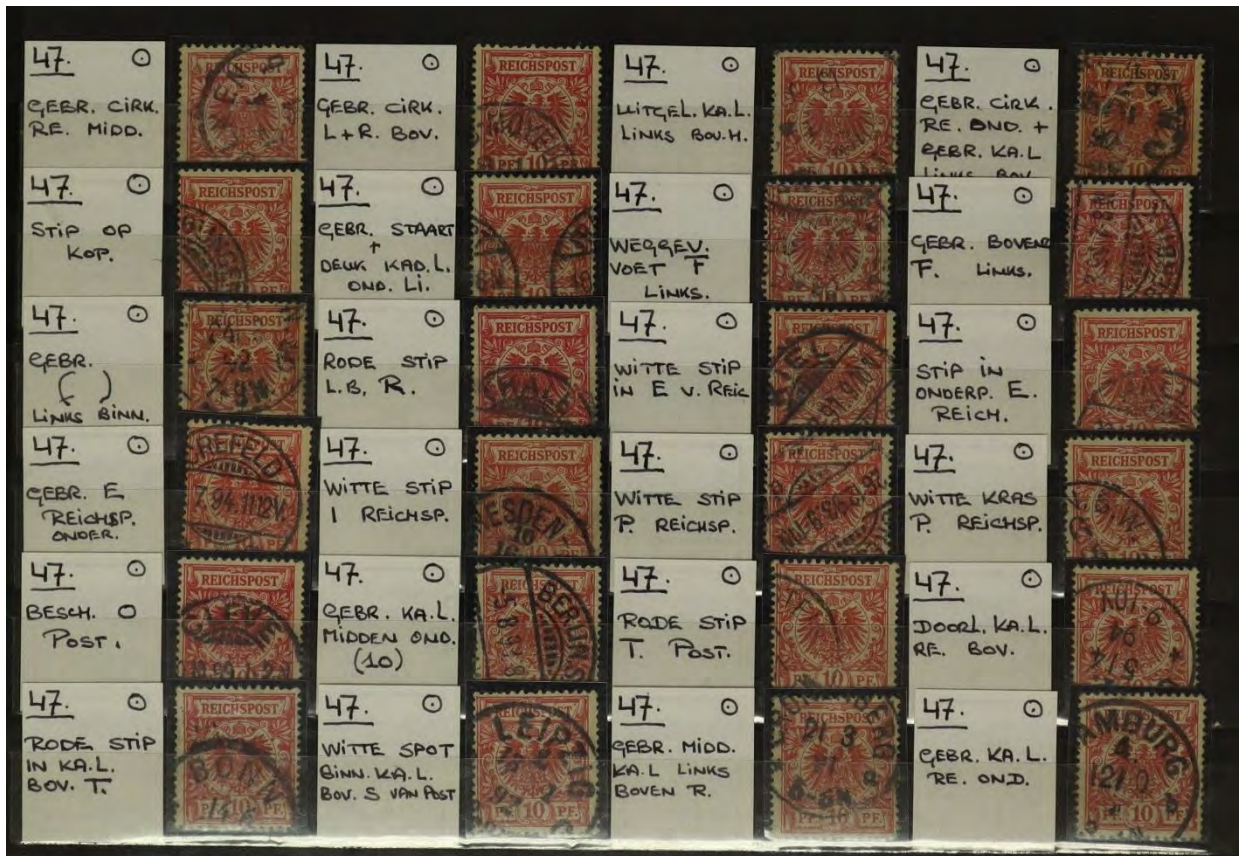 47.
GEBR. CIRK.
RE. MIDD.
REICHSPOST
47.
GEBR. CIRK.
L + R. BOV.
REICHSPOST
PF. 10 PF.
47.
UITGEL. KA.L.
LINKS BOV.H.
REICHSPOST
10
47.
GEBR. CIRK.
RE. OND. +
GEBR. KA.L
LINKS BOV.
REICHSPOST
10
47.
STIP OP
KOP.
REICHSPOST
47.
GEBR. STAART
+
DEUK KAD.L.
OND. LI.
REICHSPOST
10
47.
WEGGEV.
VOET F
LINKS.
REICHSPOST
47.
GEBR. BOVENS
F. LINKS.
REICHSPOST
47.
GEBR.
( )
LINKS BINN.
REICHSPOST
7-9N.
47.
RODE STIP
L.B. R.
REICHSPOST
47.
WITTE STIP
IN E V. REIC
REICHSPOST
KIEL
47.
STIP IN
ONDERP. E.
REICH.
REICHSPOST
47.
GEBR. E
REICHSP.
ONDER.
CREFELD
7.94.11-12V
47.
WITTE STIP
I REICHSP.
REICHSPOST
DRESDEN
16
10
47.
WITTE STIP
P. REICHSP.
REICHSPOST
47.
WITTE KRAS
P. REICHSP.
REICHSPOST
47.
BESCH. O
POST.
REICHSPOST
47.
GEBR. KA.L.
MIDDEN OND.
(10)
REICHSPOST
BERLIN
47.
RODE STIP
T. POST.
REICHSPOST
10 PF.
47.
DOORL. KA.L.
RE. BOV.
REICHSPOST
94
47.
RODE STIP
IN KA.L.
BOV. T.
REICHSPOST
BONN
PF. 10 PF.
47.
WITTE SPOT
BINN. KA.L.
BOV. S VAN POST
LEIPZIG
10 PF.
47.
GEBR. MIDD.
KA.L LINKS
BOVEN R.
21 3
47.
GEBR. KA.L.
RE. OND.
HAMBURG
4.
10 PF.